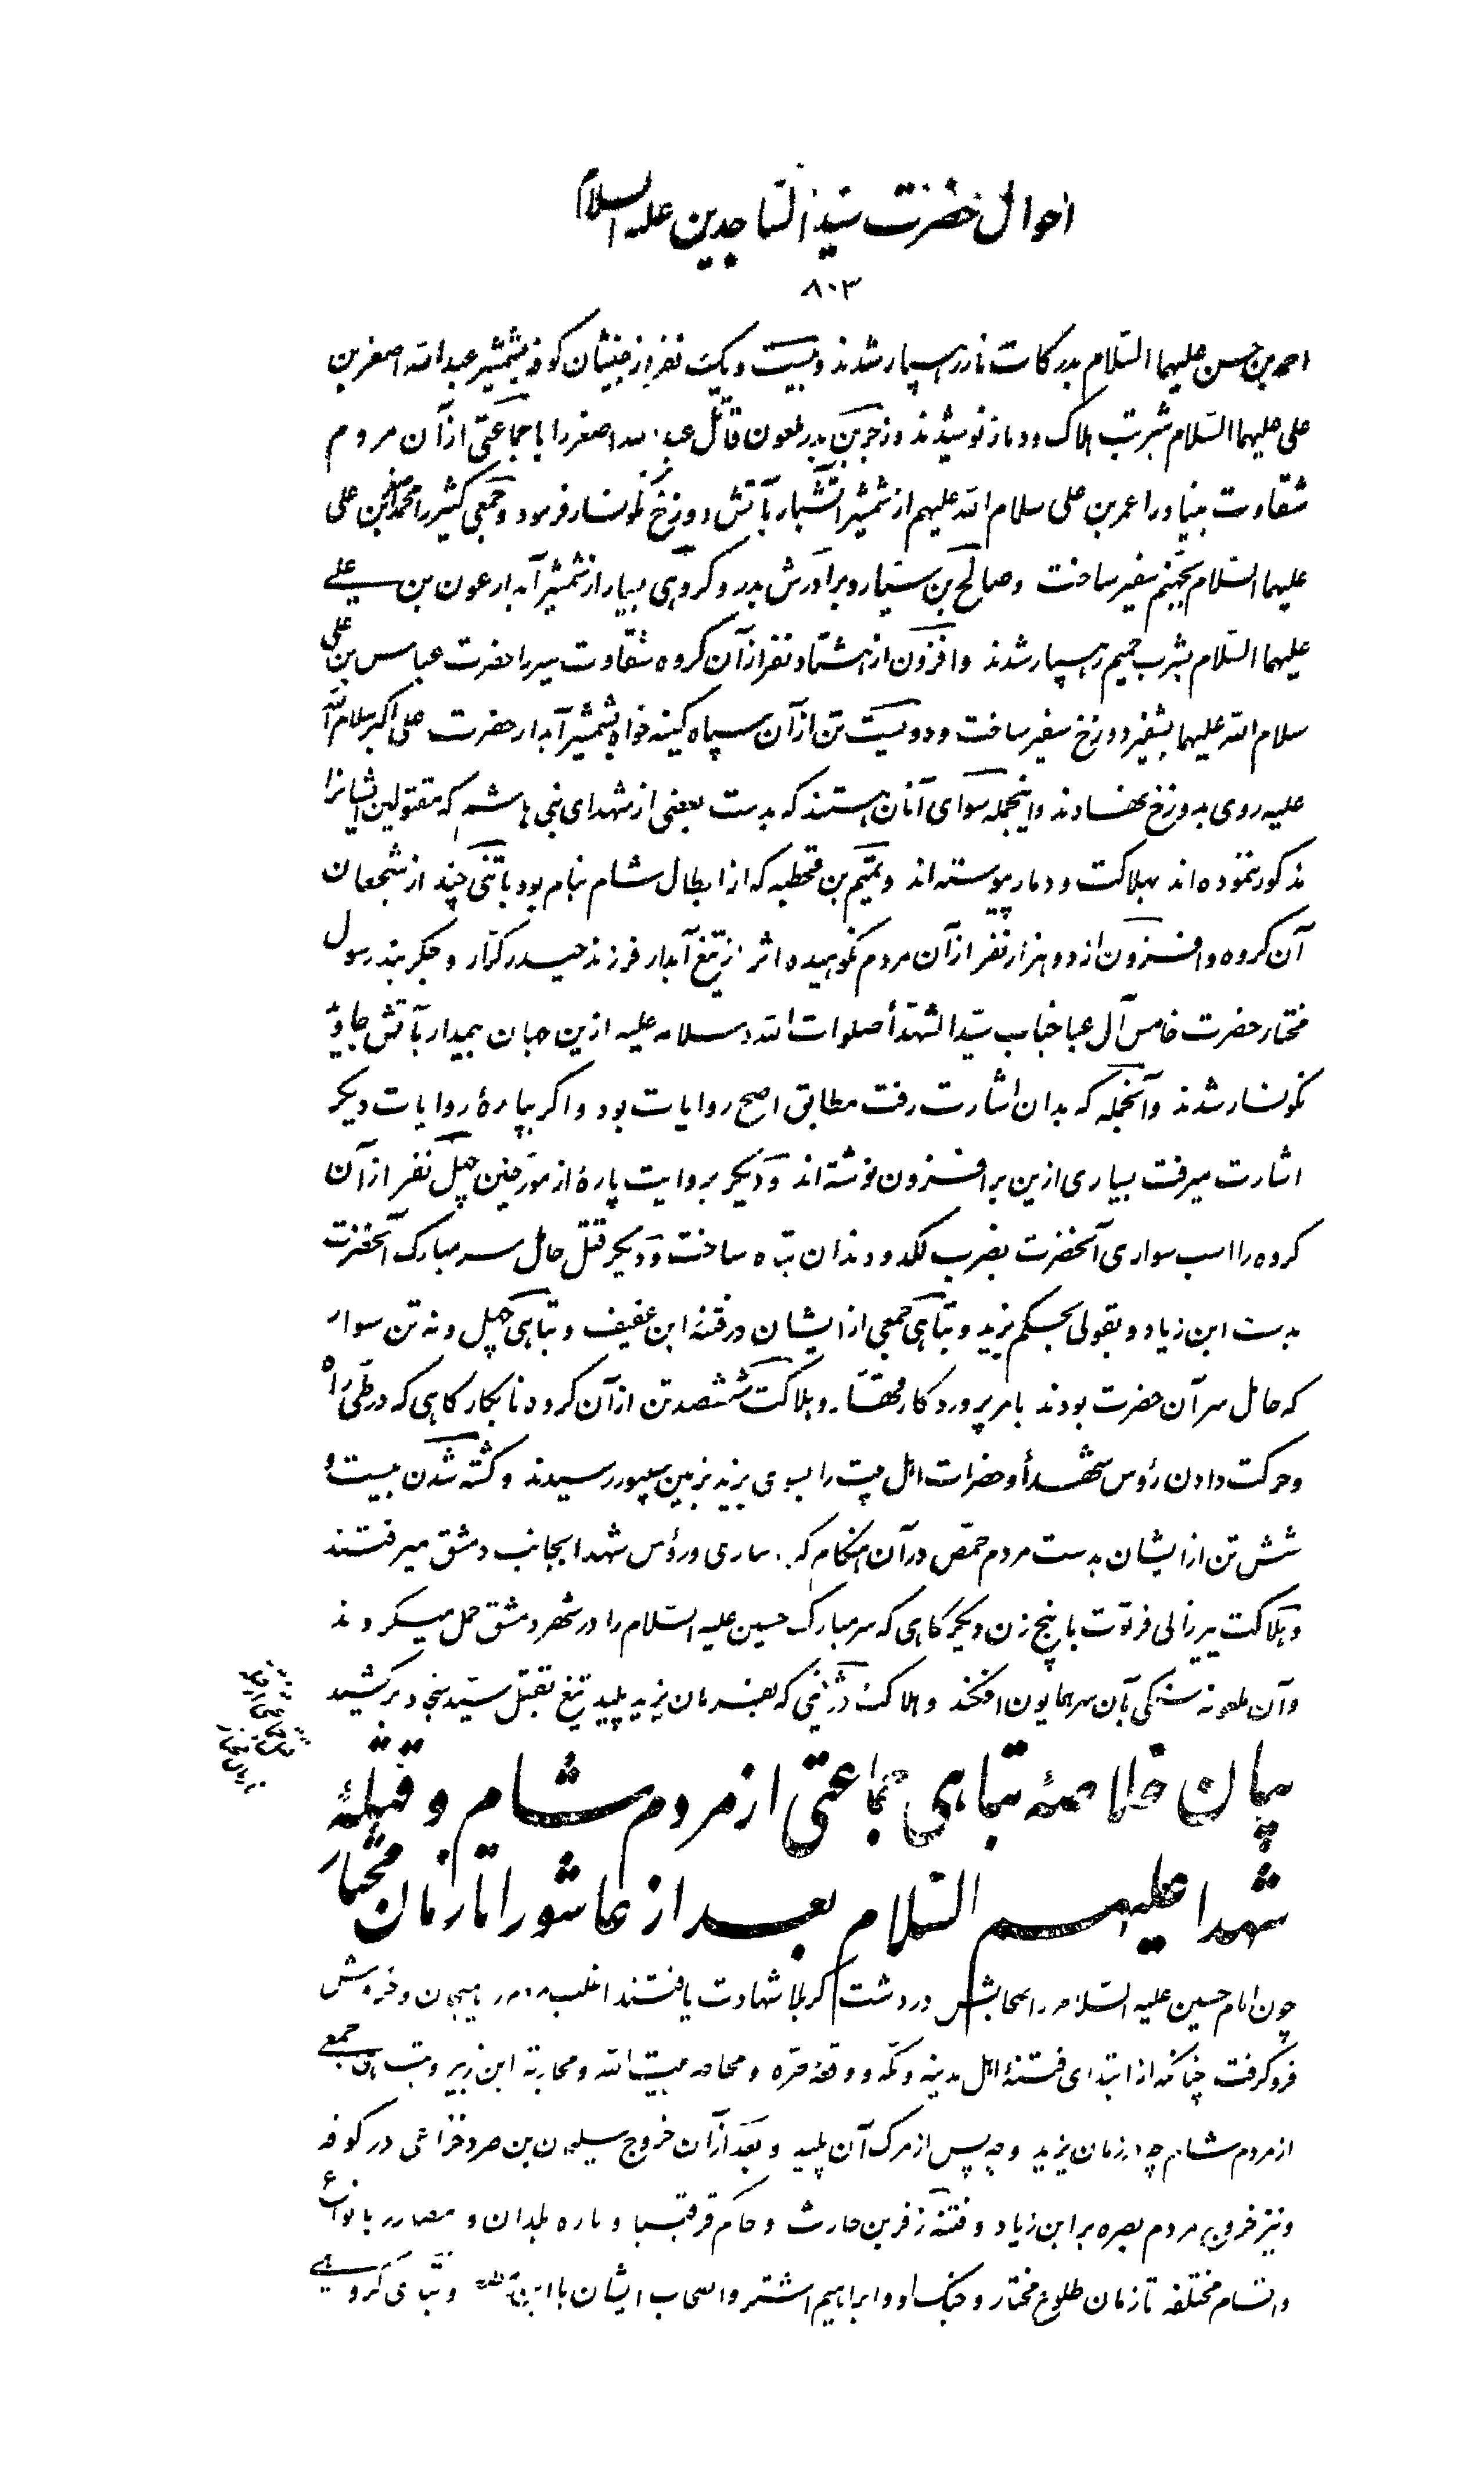 احوال حضرت سید الساجدین علیه السلام
۸۰۳
احمد بن حسن علیهما السّلام بدرکات نار رهسپار شدند و بیست و یکت نفر از خبیثان کوفه بشمشیر عبدالله اصغر بن
علی علیهما السّلام شربت هلاک و دمار نوشیدند و زجر بن بدر ملعون قاتل عبدالله اصغر را با جماعتی از آن مردم
شقاوت بنیاد را عمر بن علی سلام الله علیهم از شمشیر آتشبار بآتش دوزخ نگونسار فرمود و جمعی کثیر را محمد اصغر بن علی
علیهما السّلام بجهنم سفیر ساخت و صالح بن سیّار و برادرش بدر و گروهی بسیار از شمشیر آبدار عون بن علی
علیهما السّلام بشرب حمیم رهسپار شدند و افزون از هشتاد نفر از آن گروه شقاوت سیر را حضرت عباس بن علی
سلام الله علیهما بشفیر دوزخ سفیر ساخت و دویست تن از آن سپاه کینه خواه بشمشیر آبدار حضرت علی اکبر سلام الله
علیه روی بدوزخ نهادند و اینجمله سوای آنان هستند که بدست بعضی از شهدای بنی هاشم که مقتولین ایشانرا
مذکور ننموده اند بهلاکت و دمار پیوسته اند و تمیم بن قحطبه که از ابطال شام بنام بود با تنی چند از شجعان
آن گروه و افزون از دو هزار نفر از آن مردم نکوهیده اثر از تیغ آبدار فرزند حیدر کرّار و جگربند رسول
مختار حضرت خامس آل عبا جناب سیّد الشهدأ صلوات الله و سلامه علیه ازین جهان بیمدار بآتش جاوید
نگونسار شدند و آنجمله که بدان اشارت رفت مطابق اصح روایات بود و اگر بپارهٔ روایات دیگر
اشارت میرفت بسیاری ازین بر افزون نوشته اند و دیگر بروایت پارهٔ از مورّخین چهل نفر از آن
گروه را اسب سواری آنحضرت بضرب لگد و دندان تباه ساخت و دیگر قتل حامل سر مبارک آنحضرت
بدست ابن زیاد و بقولی بحکم یزید و تباهی جمعی از ایشان در فتنهٔ ابن عفیف و تباهی چهل و نه تن سوار
که حامل سر آن حضرت بودند بامر پروردگار قهّار و هلاکت ششصد تن از آن گروه نابکار گاهی که در طیّ راه
و حرکت دادن رؤس شهدأ و حضرات اهل بیت را بسوی یزید بزمین سیبور رسیدند و کشته شدن بیست و
شش تن از ایشان بدست مردم حمص در آن هنگام که ساری و رؤس شهدا بجانب دمشق میرفتند
و هلاکت پیرزالی فرتوت با پنج زن دیگر گاهی که سر مبارک حسین علیه السّلام را در شهر دمشق حمل میکردند
و آن ملعونه سنگی بآن سر همایون افکند و هلاکت دژخیمی که بفرمان یزید پلید تیغ بقتل سیّد سجاد برکشید
بیان خلاصهٔ تباهی جماعتی از مردم شام و قبیلهٔ
شهدا علیهم السّلام بعد از عاشورا تا زمان مختار
چون امام حسین علیه السّلام و اصحابش در دشت کربلا شهادت یافتند اغلب هیجان و خروش
فرو گرفت چنانکه از ابتدای فتنهٔ اهل مدینه و مکّه و وقعهٔ حرّه و محاصره بیت الله و محاربهٔ ابن زبیر و تباهی جمعی
از مردم شام چه در زمان یزید و چه پس از مرک آن پلید و بعد از آن خروج سلیمن بن صرد خزاعی در کوفه
و نیز خروج مردم بصره بر ابن زیاد و فتنهٔ زفر بن حارث و حاکم قرقیسا و پاره بلدان و مصادر بانواع
و اقسام مختلفه تا زمان طلوع مختار و جنگ او و ابراهیم اشتر و اصحاب ایشان با ابن و تباهی گروهی